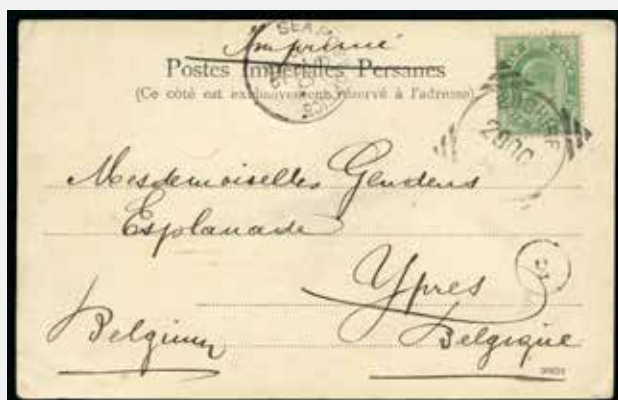 Imprimé
Postes Impériales Persanes
(Ce côté est exclusivement réservé à l'adresse)
BUSHIRE
Mesdemoiselles Gendens
Esplanade
Ypres
Belgium
Belgique